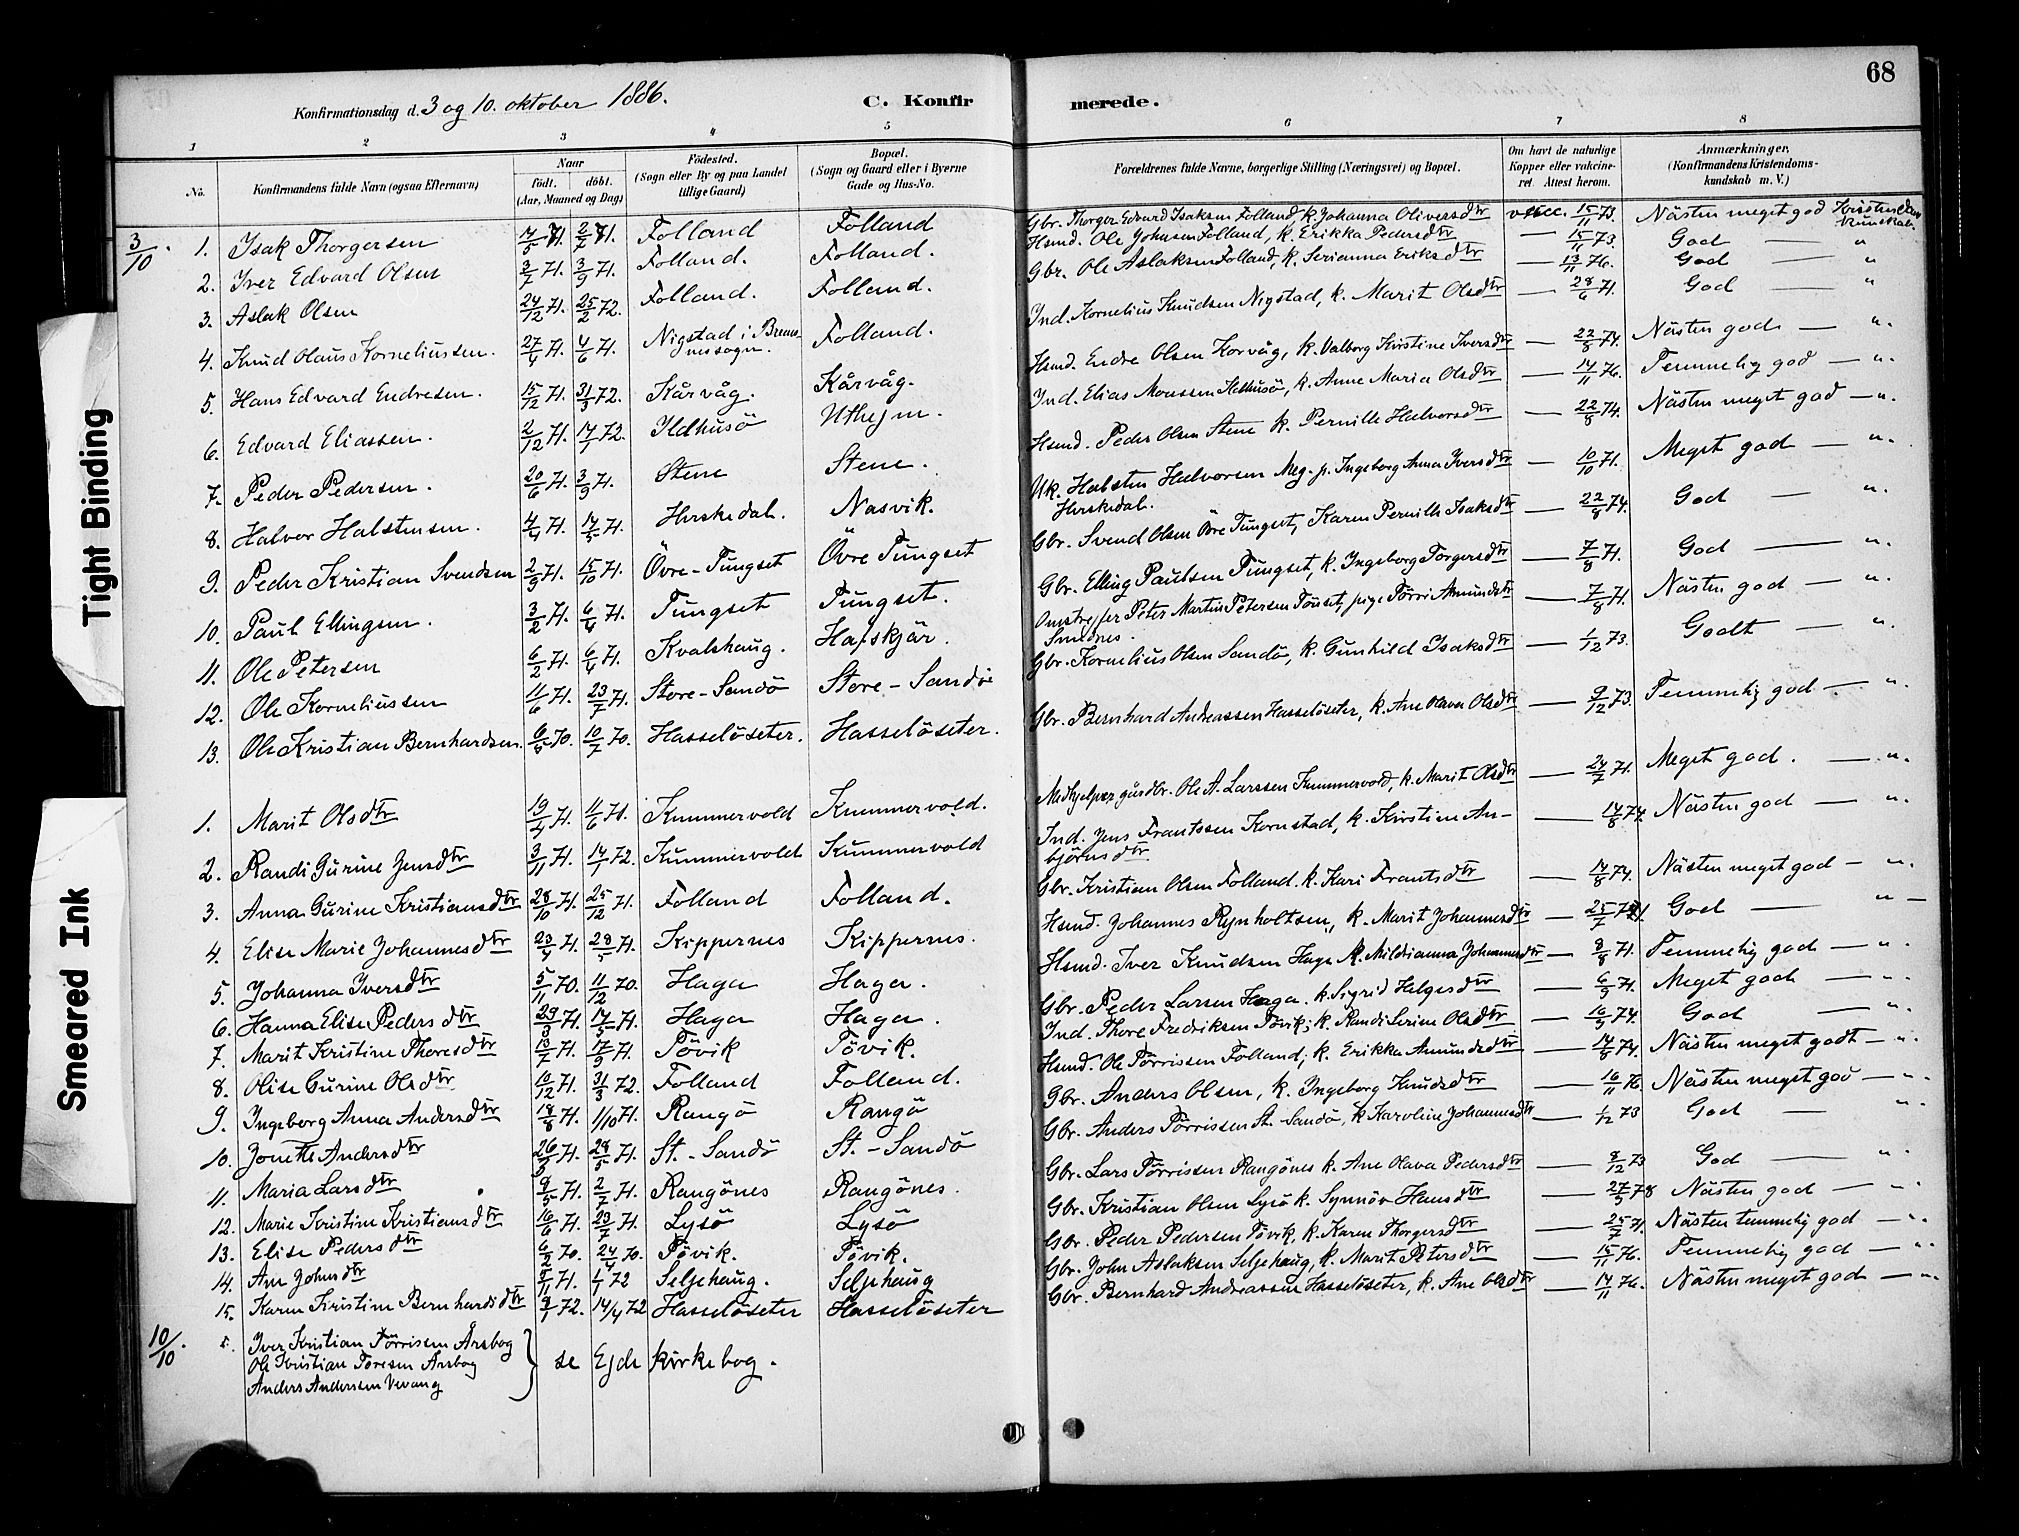 68
Konfirmationsdag d. 3 og 10. oktober 1886. C. Konfirmerede.
1 2 3 4 5 6 7 8
No. Konfirmandens fulde Navn (ogsaa Efternavn) Naar født. døbt. (Aar, Maaned og Dag) Fødested. (Sogn eller By og paa Landet tillige Gaard) Bopæl. (Sogn og Gaard eller i Byerne Gade og Hus-No. Forældrenes fulde Navne, borgerlige Stilling (Næringsvei) og Bopæl. Om havt de naturlige Kopper eller vakcineret. Attest herom. Anmærkninger. (Konfirmandens Kristendomskundskab m. V.)
3/10. 1. Isak Thorgersen 2/7 71. Folland Folland Gbr. Thorger Edvard Isaksen Folland, k. Johanna Oliversdtr vacc. 15/11 73. Nästen meget god Kristendoms Kunskab.
2. Iver Edvard Olsen 3/7 71. 3/9 71. Folland. Folland. Hsmd. Ole Johnsen Folland, k. Erikka Pedersdtr — 15/11 73. God — "
3. Aslak Olsen 24/12 71. 25/2 72. Folland. Folland. Gbr. Ole Aslaksen Folland, k. Serianna Eriksdtr — 13/11 76. God — "
4. Knud Olaus Korneliussen. 27/4 71. 4/6 71. Nigstad i Bremsnessogn. Folland. Ind. Kornelius Knudsen Nigstad, k. Marit Olsdtr — 28/6 71. God — "
5. Hans Edvard Endresen. 15/12 71. 31/3 72. Kårvåg. Kårvåg. Hsmd. Endre Olsen Korvåg, k. Valborg Kirstine Iversdtr — 22/8 74. Nästen god — "
6. Edvard Eliassen. 2/12 71. 14/1 72. Ildhusö Uthejm. Ind. Elias Monssen Ildhusö, k. Anne Maria Olsdtr — 14/11 76. Temmelig god — "
7. Peder Pedersen. 20/6 71. 3/9 71. Stene Stene. Hsmd. Peder Olsen Stene k. Pernille Halvorsdtr — 22/8 74. Nästen meget god — "
8. Halvor Halstensen. 4/4 71. 14/5 71. Herskedal. Nasvik. Uk. Halsten Halvorsen Meg. p. Ingeborg Anna Iversdtr Herskedal. — 10/10 71. Meget god — "
9. Peder Kristian Svendsen 2/9 71. 15/10 71. Övre-Tungset Övre Tungset Gbr. Svend Olsen Övre Tungset, Karen Pernille Isaksdtr — 22/8 74. God — "
10. Paul Ellingsen. 3/2 71. 6/4 71. Tungset Tungset. Gbr. Elling Paulsen Tungset, k. Ingeborg Torgersdtr — 7/8 71. God — "
11. Ole Petersen 6/2 71. 6/4 71. Kvalshaug. Hafskjär. Peter Martin Petersen pige Törri Amundsdtr Smednes. — 7/8 71. Nästen god — "
12. Ole Korneliussen 11/6 71. 23/7 71. Store-Sandö Store-Sandö Gbr. Kornelius Olsen Sandö, k. Gunhild Isaksdtr — 1/12 73. Godt — "
13. Ole Kristian Bernhardsen. 10/7 70. Hasselöseter. Hasselöseter. Gbr. Bernhard Andreassen Hasselöseter, k. Ane Olava Olsdtr — 9/12 73. Temmelig god. — "
1. Marit Olsdtr 19/4 71. 11/6 71. Kummervold Kummervold. Medhjelper gårdbr. Ole A. Larssen Kummervold, k. Marit Olsdtr — 24/7 71. Meget god. — "
2. Randi Gurine Jensdtr 3/11 71. 14/1 72. Kummervold Kummervold Ind. Jens Frantssen Kornstad, k. Kirstine Anbjörnsdtr — 14/8 74. Nästen god — "
3. Anna Gurine Kristiansdtr 28/10 71. 25/12 71. Folland Folland. Gbr. Kristian Olsen Folland. k. Kari Frantsdtr — 14/8 74. Nästen meget god — "
4. Elise Marie Johannesdtr 23/4 71. 28/5 71. Kippernes Kippernes. Hsmd. Johannes Rynholtsen, k. Marit Johannesdtr — 25/7 71 God — "
5. Johanna Iversdtr 5/11 70. 11/12 70. Haga Haga. Hsmd. Iver Knudsen Haga k. Mildianna Johannesdtr — 8/8 71. Temmelig god — "
6. Hanna Elise Pedersdtr 29/3 71. 14/5 71. Haga Haga. Gbr. Peder Larsen Haga. k. Sigrid Helgesdtr — 6/9 71. Meget god — "
7. Marit Kristine Thoresdtr 13/7 71. 17/9 71. Tövik Tövik. Ind. Thore Fredriksen Tövik, k. Randi Serine Olsdtr — 74. God — "
8. Olise Gurine Olsdtr 10/12 71. 31/3 72. Folland Folland. Hsmd. Ole Törrissen Folland, k. Erikka Amundsdtr — 14/8 74. Nästen meget godt — "
9. Ingeborg Anna Andersdtr 18/8 71. 1/10 71. Rangö Rangö Gbr. Anders Olsen, k. Ingeborg Knudsdtr — 16/11 76. Nästen meget god — "
10. Jonette Andersdtr 26/3 71. 28/5 71. St.-Sandö St.-Sandö Gbr. Anders Törrissen St. Sandö, k. Karoline Johannesdtr — 1/12 73 God — "
11. Maria Larsdtr 9/5 71. 2/7 71. Rangönes Rangönes. Gbr. Lars Törrissen Rangönes k. Ane Olava Pedersdtr — 8/12 73 God — "
12. Marie Kristine Kristiansdtr 16/6 71. 23/7 71. Lysö Lysö Gbr. Kristian Olsen Lysö k. Synnöv Hansdtr — 27/9 78 Nästen god — "
13. Elise Pedersdtr 6/2 70. 24/4 70. Tövik. Tövik. Gbr. Peder Pedersen Tövik, k. Karen Thorgersdtr — 25/7 71. Nästen temmelig god — "
14. Ane Johnsdtr 5/11 71. 1/1 72 Seljehaug. Seljehaug Gbr. John Aslaksen Seljehaug, k. Marit Petersdtr — 15/11 76. Temmelig god — "
15. Karen Kristine Bernhardsdtr 9/1 72. 14/4 72 Hasselöseter Hasselöseter Gbr. Bernhard Andreassen Hasselöseter, k. Ane Olsdtr — 14/11 76. Nästen meget god — "
10/10. Iver Kristian Törrissen Årsbog
Ole Kristian Toresen Årsbog } se Ejde kirkebog.
Anders Andersen Vevang
Tight Binding
Smeared Ink